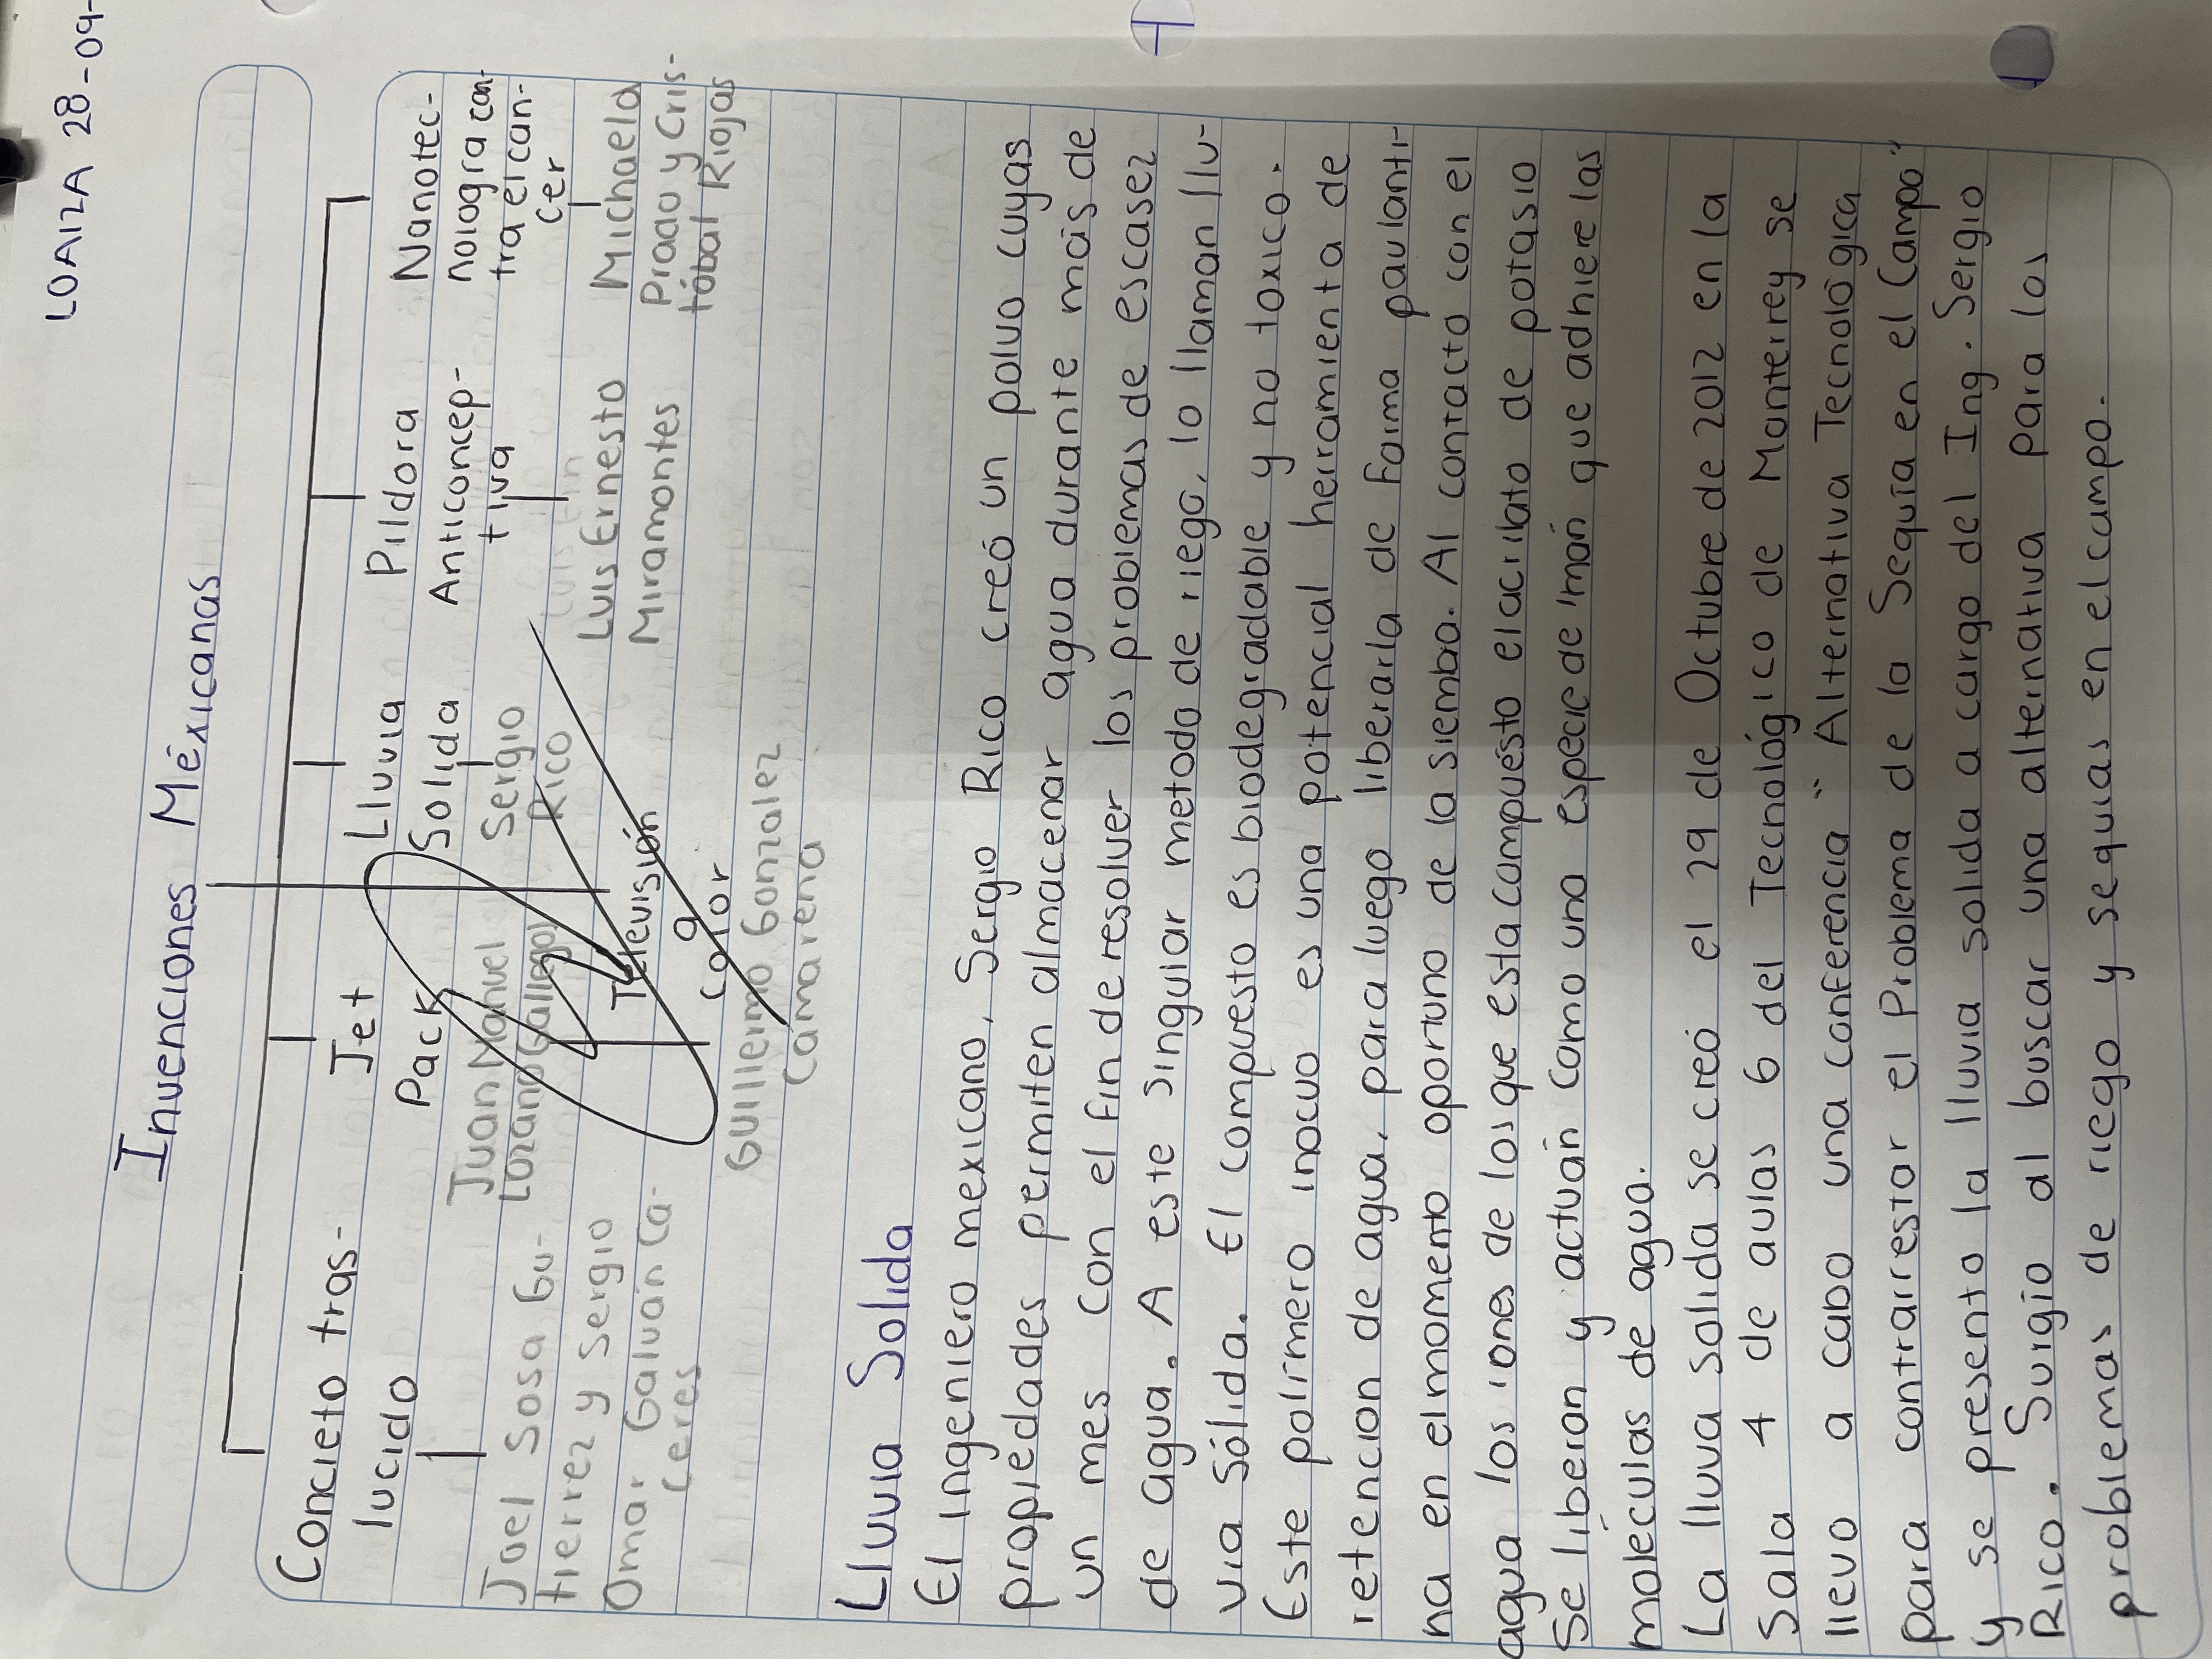 LOAIZA 28-09-
Invenciones Méxicanas
Concreto tras-
lucido
Joel Sosa Gu-
tierrez y Sergio
Omar Galván Ca-
ceres
Jet
Pack
Juan Manuel
Lozano Gallegos
Lluvia
Solida
Sergio
Rico
Pildora
Anticoncep-
tiva
Luis Ernesto
Miramontes
Nanotec-
nologra con-
tra el can-
cer
Michaela
Prado y Cris-
tóbal Riojas
Televisión
a
color
Guillermo Gonzalez
Camarena
Lluvia Solida
El ingeniero mexicano, Sergio Rico creó un polvo cuyas
propiedades permiten almacenar agua durante más de
un mes con el fin de resolver los problemas de escasez
de agua. A este singular metodo de riego, lo llaman llu-
via Sólida. El compuesto es biodegradable y no toxico.
Este polímero inocuo es una potencial herramienta de
retencion de agua, para luego liberarla de forma paulanti-
na en el momento oportuno de la siembra. Al contacto con el
agua los iones de los que esta compuesto el acrilato de potasio
Se liberan y actuán como una especie de imán que adhiere las
moleculas de agua.
La lluva solida se creó el 29 de Octubre de 2012 en la
Sala 4 de aulas 6 del Tecnológico de Monterrey se
llevo a cabo una conferencia "Alternativa Tecnológica
para contrarrestar el Problema de la Sequía en el Campo"
y se presento la lluvia solida a cargo del Ing. Sergio
Rico. Surgio al buscar una alternativa para los
problemas de riego y sequias en el campo.